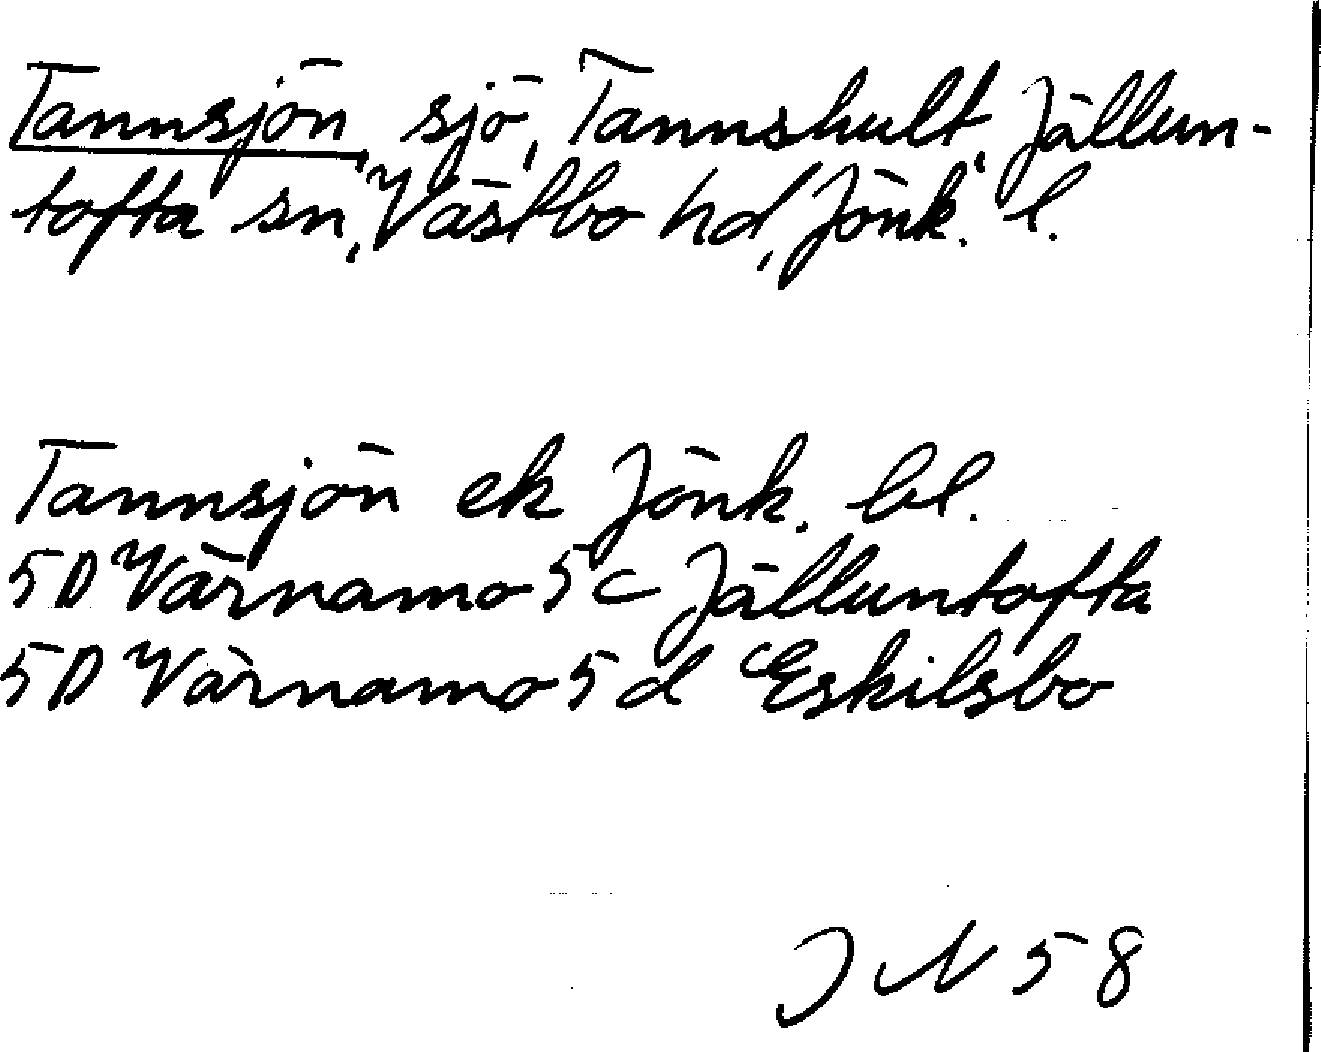 Tannsjön, sjö, Tannshult, Jällun-
tofta sn, Västbo hd, Jönk. l.
Tannsjön ek Jönk. bl.
5D Värnamo 5c Jälluntofta
5D Värnamo 5d Eskilsbo
JN 58